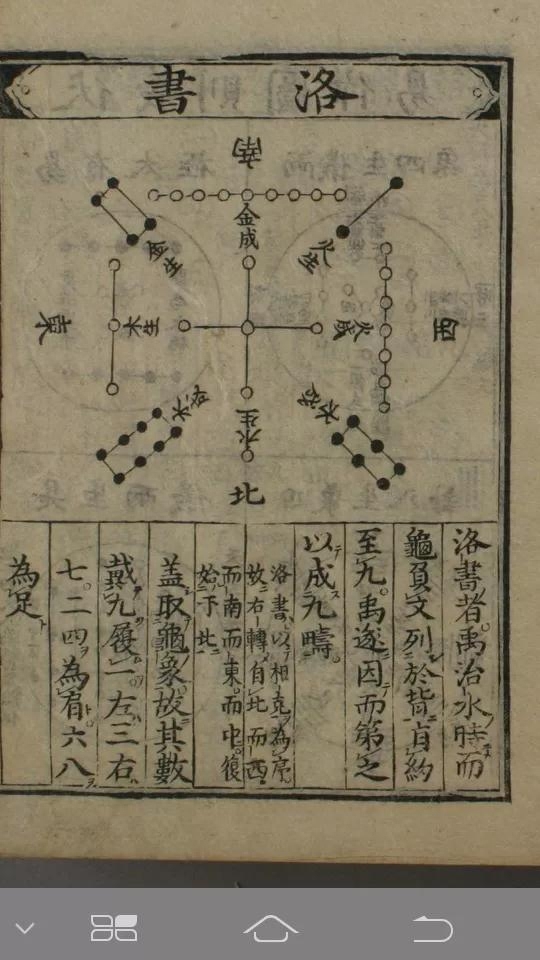 洛書
南
金成
金生
火生
東
木生
火成
西
木成
水成
水生
北
洛書者禹治水時而
龜負文列於背有約
至九禹遂因而第之
以成九疇
洛書以相克為序
故右轉自北而西
而南而東而中復
始于北
蓋取龜象故其數
戴九履一左三右
七二四為肩六八
為足